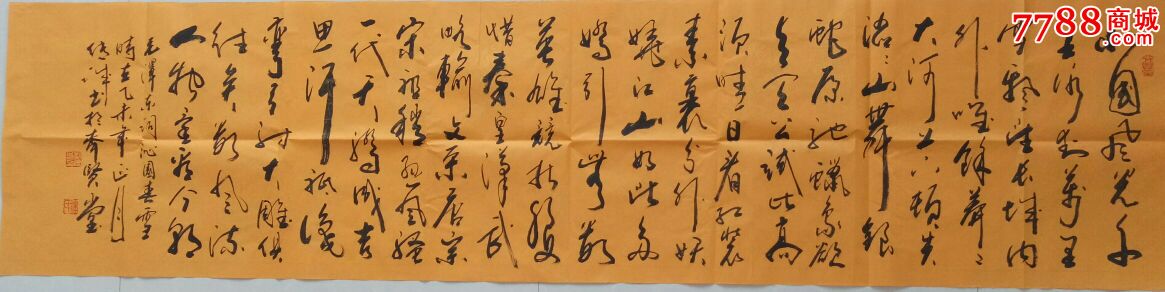 7788商城
.com
國风光千
里冰封萬里
雪飘望长城内
外唯餘莽莽
大河上下顿失
滔滔山舞银
蛇原驰蠟象欲
与天公试比高
须晴日看红装
素裹分外妖
娆江山如此多
娇引无数
英雄竞折腰
惜秦皇漢武
略輸文采唐宗
宋祖稍逊风骚
一代天骄成吉
思汗祇识
弯弓射大雕俱
往矣数风流
人物还看今朝
毛澤东词沁园春雪
時在乙未年正月
书於齐贤堂